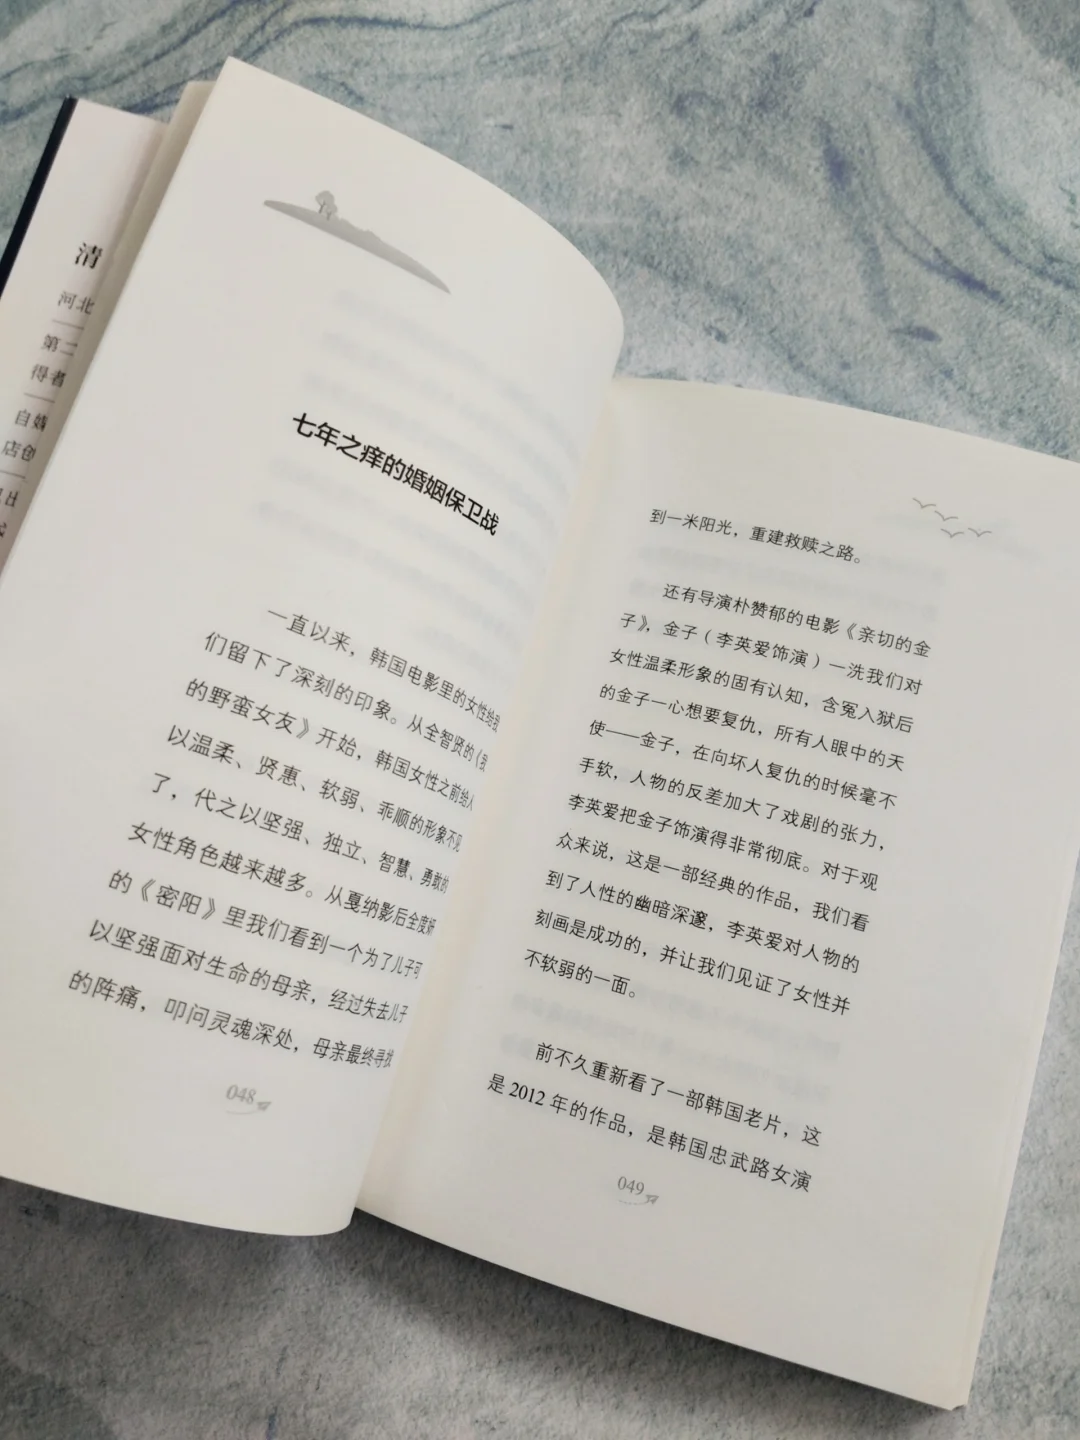 清
河北
第二
得者
自媒
店创
七年之痒的婚姻保卫战
一直以来，韩国电影里的女性给我
们留下了深刻的印象。从全智贤的《我
的野蛮女友》开始，韩国女性之前给人
以温柔、贤惠、软弱、乖顺的形象不见
了，代之以坚强、独立、智慧、勇敢的
女性角色越来越多。从戛纳影后全度妍
的《密阳》里我们看到一个为了儿子可
以坚强面对生命的母亲，经过失去儿子
的阵痛，叩问灵魂深处，母亲最终寻找
048
到一米阳光，重建救赎之路。
还有导演朴赞郁的电影《亲切的金
子》，金子（李英爱饰演）一洗我们对
女性温柔形象的固有认知，含冤入狱后
的金子一心想要复仇，所有人眼中的天
使——金子，在向坏人复仇的时候毫不
手软，人物的反差加大了戏剧的张力，
李英爱把金子饰演得非常彻底。对于观
众来说，这是一部经典的作品，我们看
到了人性的幽暗深邃，李英爱对人物的
刻画是成功的，并让我们见证了女性并
不软弱的一面。
前不久重新看了一部韩国老片，这
是 2012 年的作品，是韩国忠武路女演
049